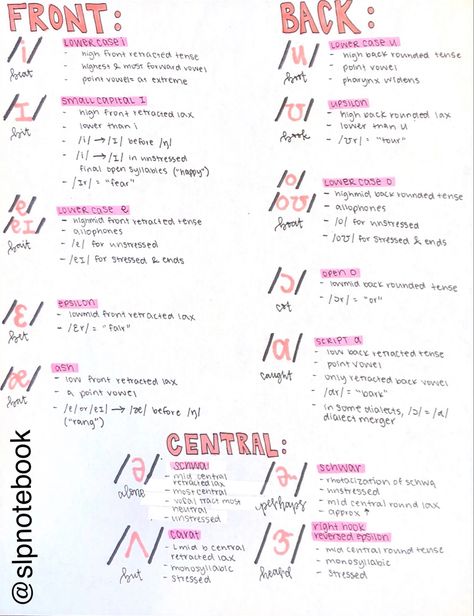 FRONT:
/i/
beat
lowercase i
- high front retracted tense
- highest & most forward vowel
- point vowel = at extreme
/ɪ/
bit
small capital I
- high front retracted lax
- lower than i
- /i/ → /ɪ/ before /ŋ/
- /i/ → /ɪ/ in unstressed
final open syllables ("happy")
- /ɪr/ = "fear"
/e/
/eɪ/
bait
lowercase e
- highmid front retracted tense
- allophones
- /e/ for unstressed
- /eɪ/ for stressed & ends
/ɛ/
bet
epsilon
- lowmid front retracted lax
- /ɛr/ = "fair"
/æ/
bat
ash
- low front retracted lax
- a point vowel
- /ɛ/ or /eɪ/ → /æ/ before /ŋ/
("rang")
BACK:
/u/
boot
lowercase u
- high back rounded tense
- point vowel
- pharynx widens
/ʊ/
book
upsilon
- high back rounded lax
- lower than u
- /ʊr/ = "tour"
/o/
/oʊ/
boat
lowercase o
- highmid back rounded tense
- allophones
- /o/ for unstressed
- /oʊ/ for stressed & ends
/ɔ/
open o
- lowmid back rounded tense
- /ɔr/ = "or"
/ɑ/
caught
script a
- low back retracted tense
- point vowel
- only retracted back vowel
- /ɑr/ = "bark"
- in some dialects, /ɔ/ = /ɑ/
dialect merger
CENTRAL:
/ə/
alone
schwa
- mid central
retracted lax
- most central
- vocal tract most
neutral
- unstressed
/ɚ/
perhaps
schwar
- rhotacization of schwa
- unstressed
- mid central round lax
- approx ↑
/ʌ/
but
carat
- lmid b central
retracted lax
- monosyllabic
- stressed
/ɝ/
heard
right hook
reversed epsilon
- mid central round tense
- monosyllabic
- stressed
@slpnotebook